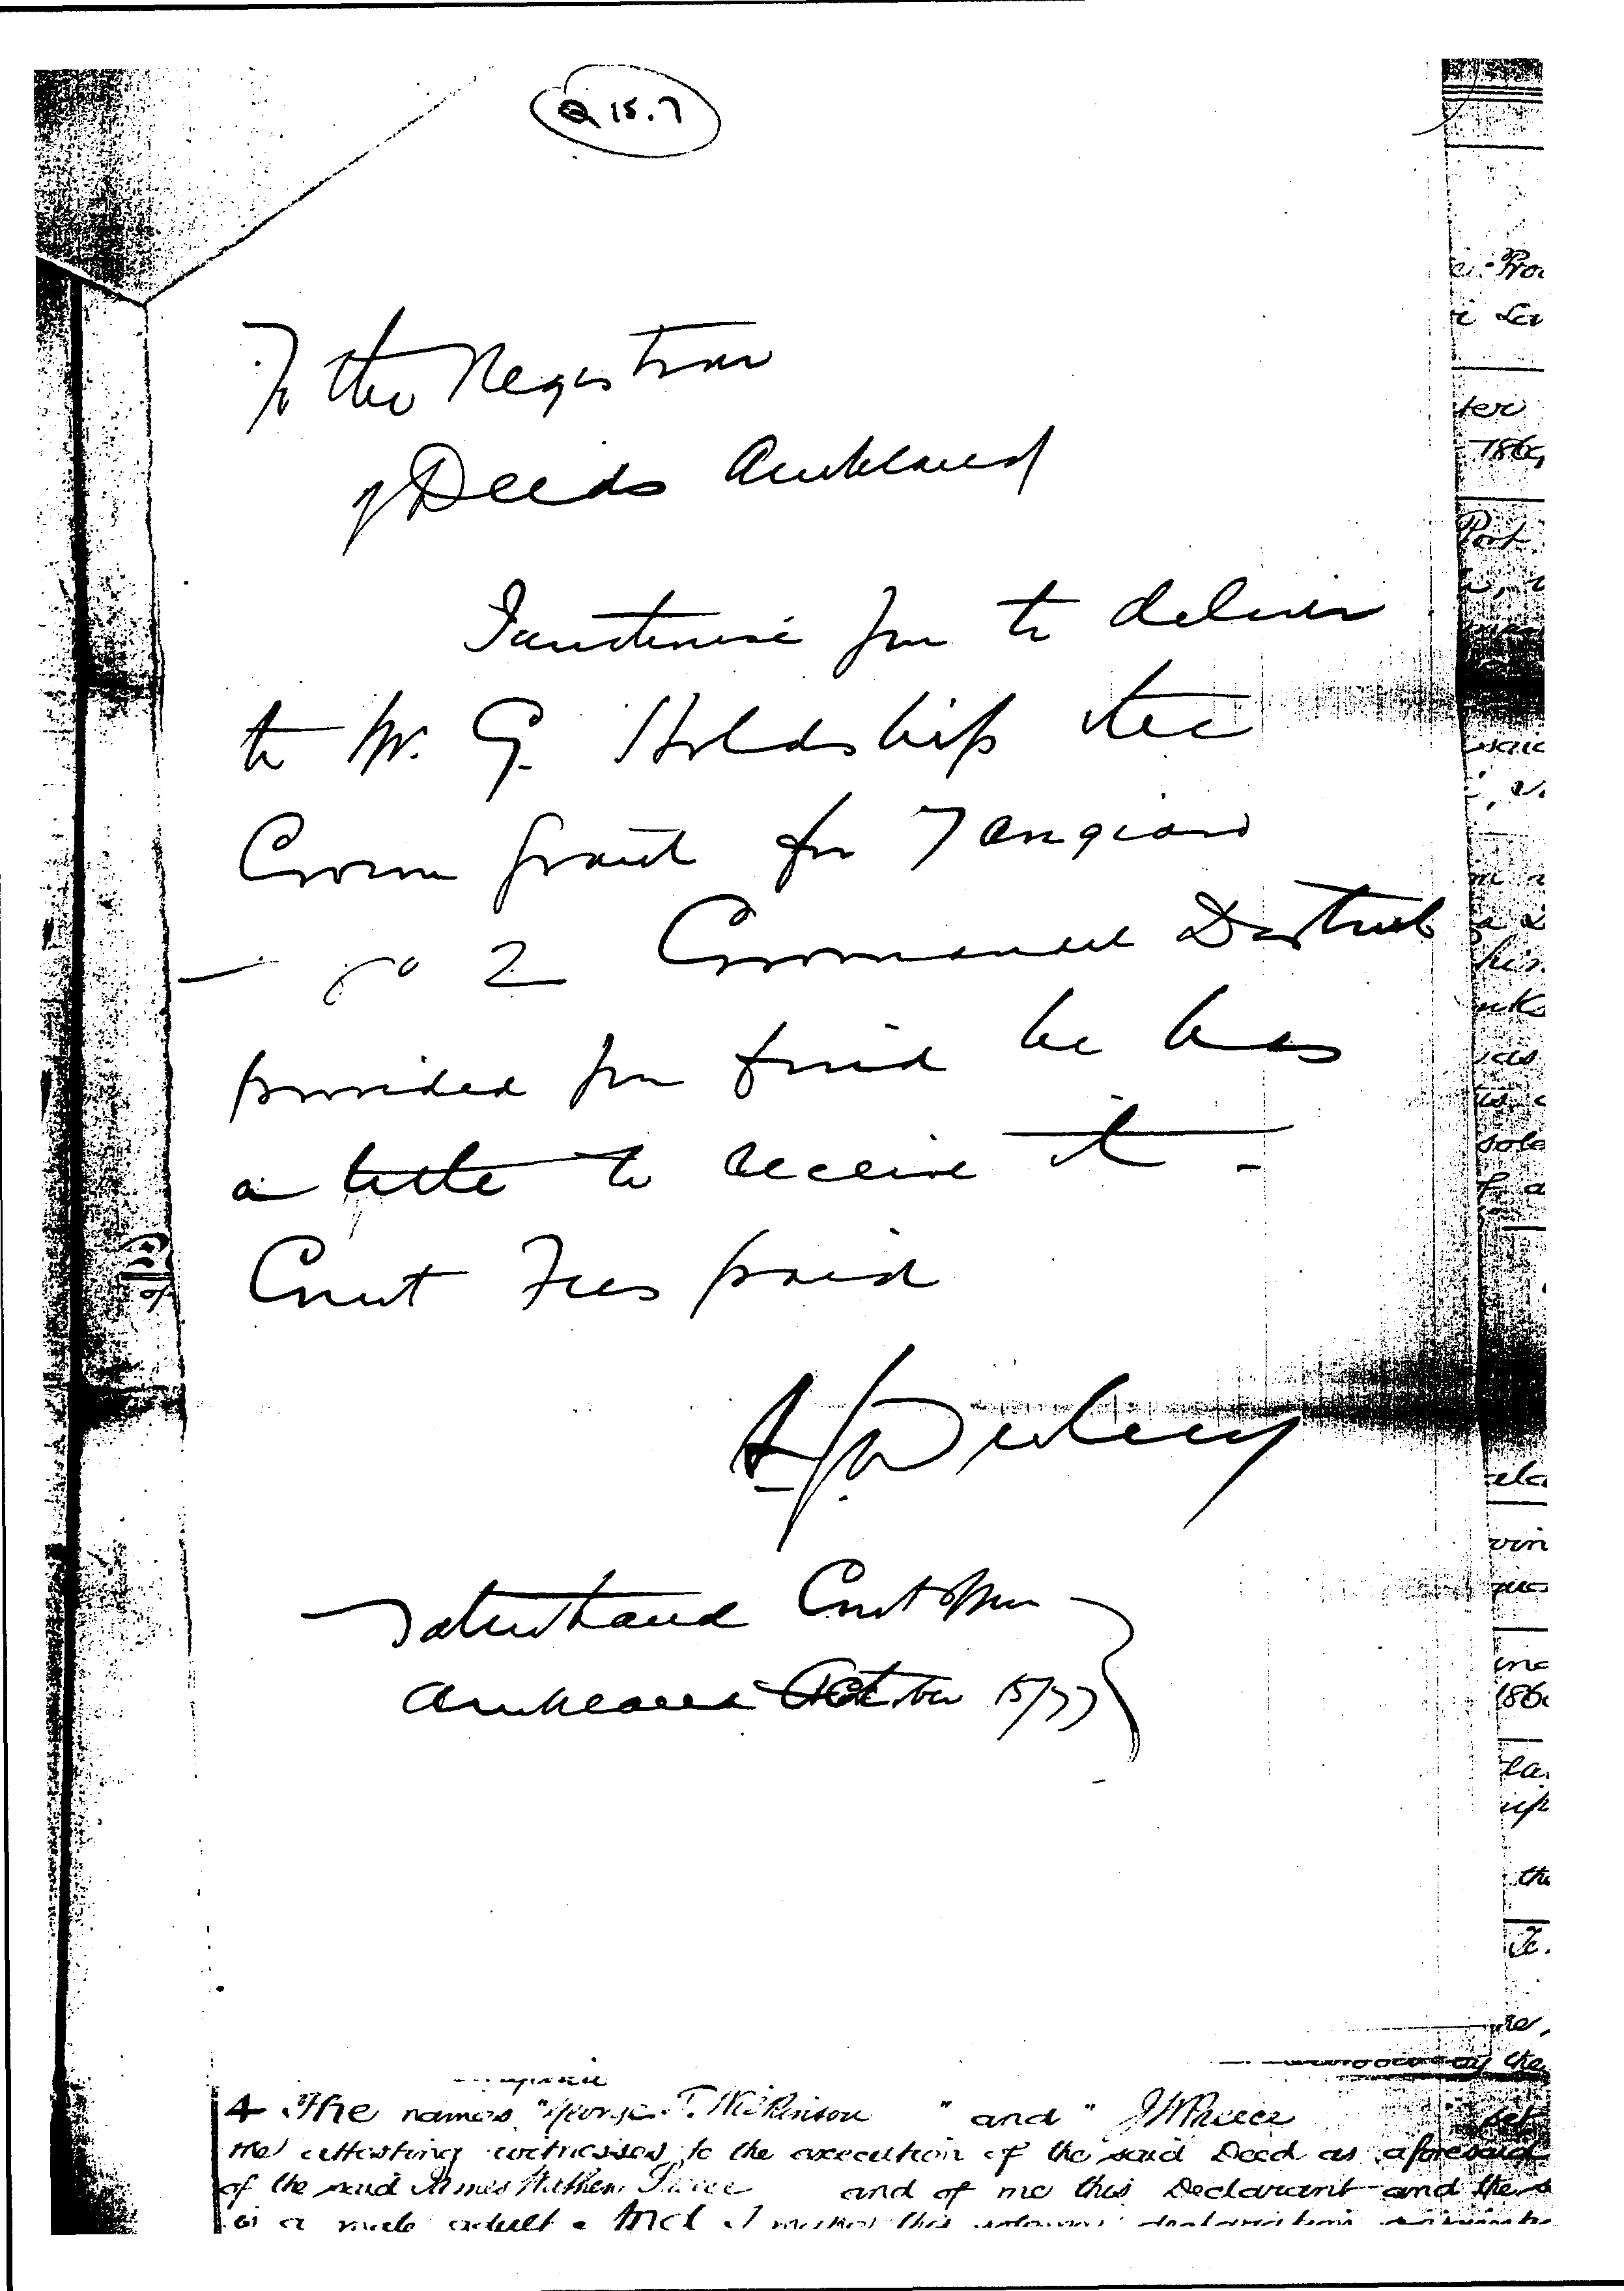 Q 15.7
To the Registrar
of Deeds Auckland
I authorise you to deliver
to Mr. G. Holdship the
Crown Grant for Tangiaro
— No 2 Coromandel District
provided you find he has
a title to receive it -
Court Fees paid
Native Land Court Office
Auckland October 15/77
4 The names "George T. Wilkinson " and " J W Preece " set
the attesting witnesses to the execution of the said Deed as aforesaid
of the said James Wathen Preece and of me this Declarant and the s
is a male adult. And I make this solemn declaration